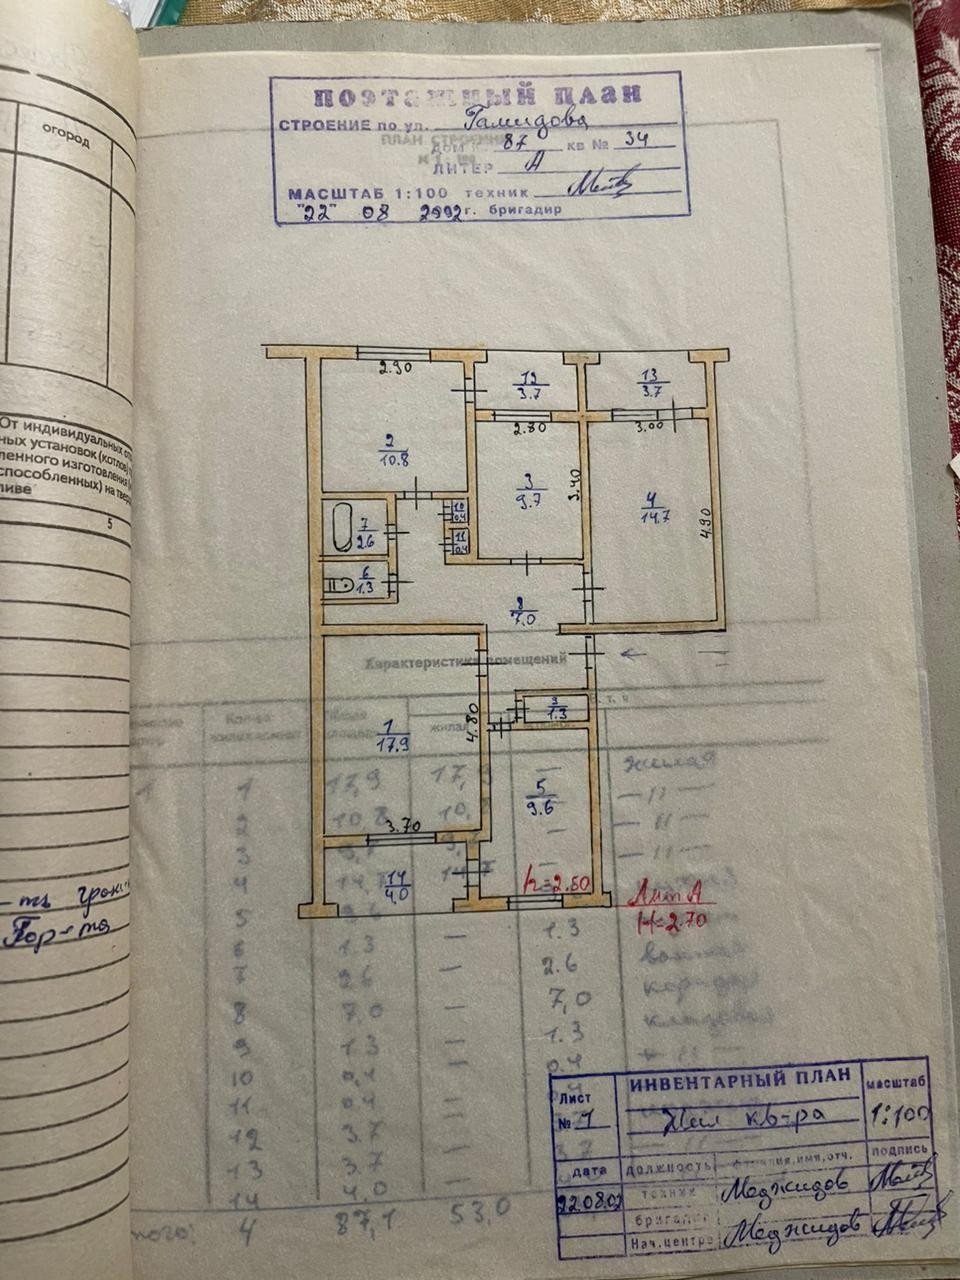 огород
От индивидуальных
ных установок (котлов)
ленного изготовления
способленных) на
ливе
5
ПОЭТАЖНЫЙ ПЛАН
СТРОЕНИЕ по ул. Гамидова
ДОМ 87 кв № 34
ЛИТЕР А
МАСШТАБ 1:100 техник
"22" 08 2002 г. бригадир
2.90
12
3.7
13
3.7
2.80
3.00
2
10.8
3
9.7
3.40
4
14.7
4.90
10
0.4
7
2.6
11
0.4
6
1.3
8
7.0
Характеристика помещений
9
1.3
4.80
1
17.9
5
9.6
3.70
14
4.0
h=2.50
Лит А
H=2.70
1 1 17,9 17,9 — жилая
2 10.8 10,8 — —"—
3 — —"—
4 14,7 14,7
5
6 1.3 — 1.3
7 2.6 — 2.6
8 7,0 — 7,0
9 1.3 — 1.3
10 0,4 — 0.4
11 0,4 —
12 3.7 —
13 3.7 —
14 4,0 —
4 87,1 53,0
ИНВЕНТАРНЫЙ ПЛАН
Лист
№ 1
Жил кв-ра
масштаб
1:100
дата
должность
фамилия, имя, отч.
подпись
22.08.02
техник
Меджидов
бригадир
Нач. центра
Меджидов